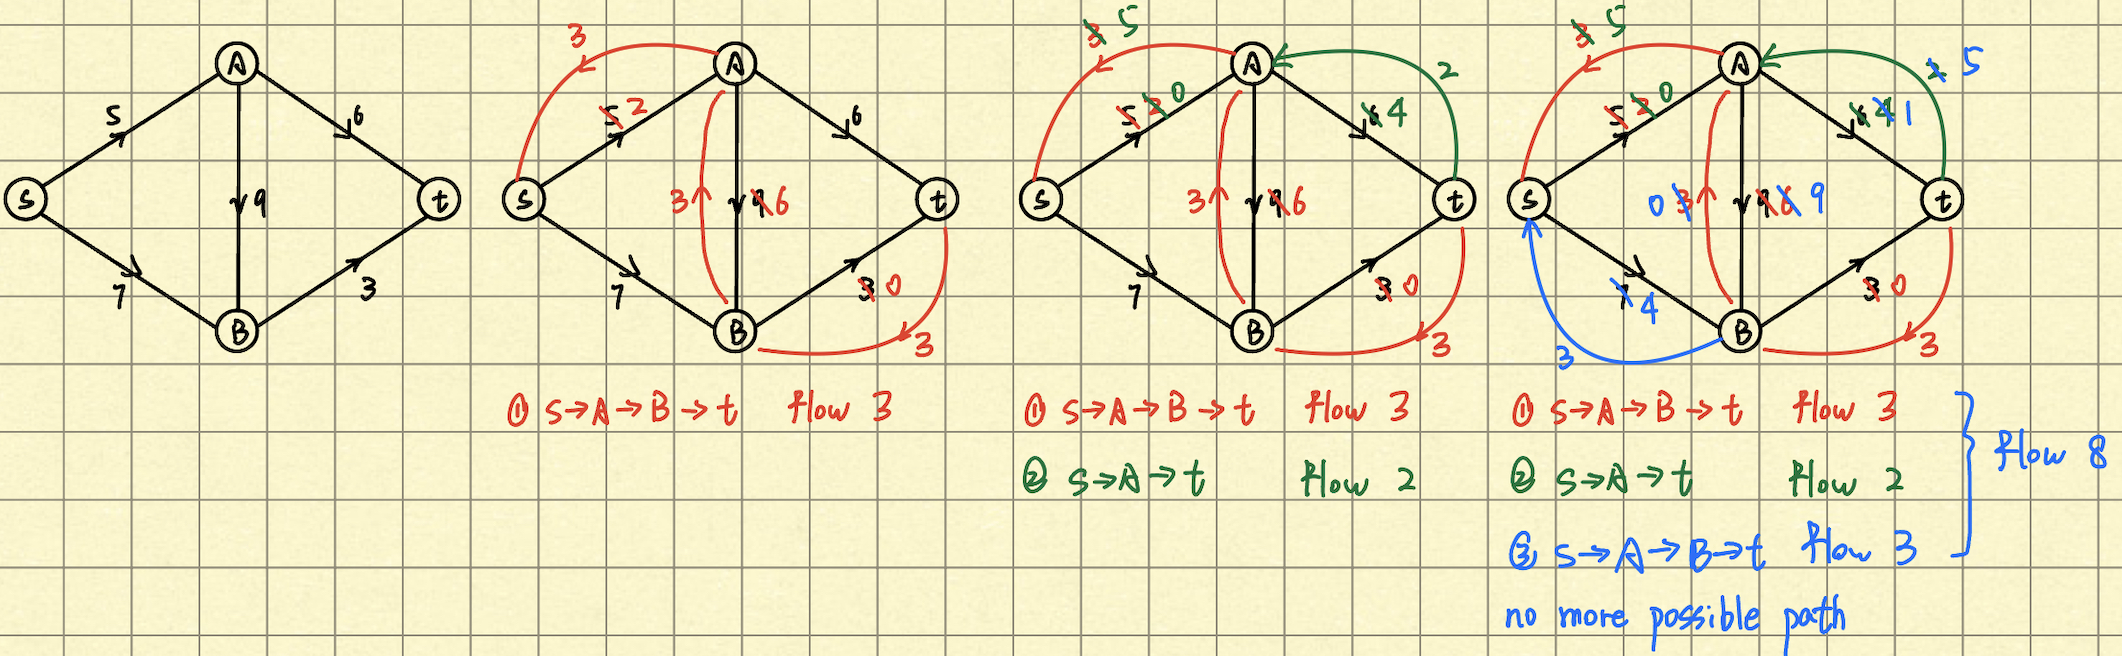 A
5
6
S
9
t
7
3
B
3
A
5 2
6
S
3
9 6
t
7
3 0
B
3
① S→A→B→t flow 3
3 5
A
2
5 2 0
6 4
S
3
9 6
t
7
3 0
B
3
① S→A→B→t flow 3
② S→A→t flow 2
3 5
A
2 5
5 2 0
6 4 1
S
0 3
9 6 9
t
7 4
3 0
B
3
3
① S→A→B→t flow 3
② S→A→t flow 2
③ S→A→B→t flow 3
flow 8
no more possible path